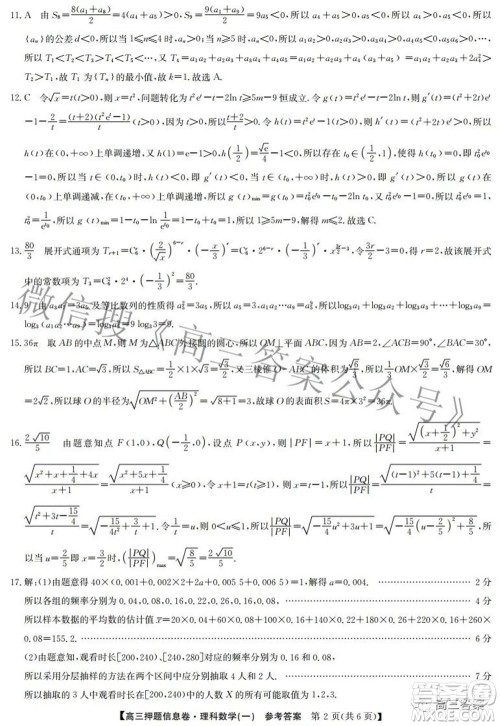 11. A 由 S₈=8(a₁+a₈)/2=4(a₄+a₅)>0, S₉=9(a₁+a₉)/2=9a₅<0, 所以 a₄>0, a₅<0, 且 a₄+a₅>0, 所以
{aₙ}的公差 d<0, 所以当 1≤n≤4 时, aₙ>0; 当 n≥5 时, aₙ<0, 所以 a₁a₂>0, a₂a₃>0, a₃a₄>0, a₄a₅<0, a₅a₆>0, …,
所以 T₁<T₂<T₃, T₃>T₄, T₄<T₅<T₆<…, 又 T₄=a₁a₂+a₂a₃+a₃a₄+a₄a₅=a₁a₂+a₂a₃+a₄(a₃+a₅)>0, 所以 T₄>
T₂>T₁>0, 故 T₁ 为{Tₙ}的最小值, 故 k=1. 故选 A.
12. C 令√x=t(t>0), 则 x=t², 问题转化为 t²eᵗ−t−2ln t≥5m−9 恒成立. 令 g(t)=t²eᵗ−t−2ln t, 则 g′(t)=(t²+2t)eᵗ
−1−2/t=(t+2)(t²eᵗ−1)/t (t>0), 因为 t>0, 所以(t+2)/t>0. 令 h(t)=t²eᵗ−1(t>0), 则 h′(t)=(t²+2t)eᵗ>0, 所以
h(t)在(0,+∞)上单调递增, 又 h(1)=e−1>0, h(1/2)=√e/4−1<0, 所以存在 t₀∈(1/2,1), 使得 h(t₀)=0, 即 t₀²e^t₀−1
=0, 所以当 t∈(0,t₀)时, h(t)<0, 即 g′(t)<0, 当 t∈(t₀,+∞)时, h(t)>0, 即 g′(t)>0, 所以 g(t)在
(0,t₀)上单调递减, 在(t₀,+∞)上单调递增, 所以 g(t)min=g(t₀)=t₀²e^t₀−t₀−2ln t₀, 又 t₀²e^t₀−1=0, 即
t₀²=1/e^t₀, 所以 g(t)min=1−t₀−ln 1/e^t₀=1−t₀+t₀=1, 所以 1≥5m−9, 解得 m≤2. 故选 C.
13. 80/3 展开式通项为 Tᵣ₊₁=C₆ʳ·(2/√x)⁶⁻ʳ·(−x/3)ʳ=C₆ʳ·2⁶⁻ʳ·(−1/3)ʳ·x^(3r/2−3), 令 3r/2−3=0, 得 r=2, 故该展开式
中的常数项为 T₃=C₆²·2⁴·(−1/3)²=80/3.
14. 9 由 a₂a₅=3a₃及等比数列的性质得 a₃²=3a₅, 所以
log₃(a₁a₂…a₉)=log₃a₅⁹=9log₃3=9.
15. 36π 取 AB 的中点 M, 则 M 为△ABC 外接圆的圆心, 所以 OM⊥平面 ABC. 因为 AB=2, ∠ACB=90°, ∠BAC=30°,
所以 BC=1, AC=√3, 所以 S△ABC=1/2×1×√3=√3/2, 解得 OM
=2√2, 所以球 O 的半径为√(OM²+(AB/2)²)=√(8+1)=3, 故球 O 的表面积 S=4π×3²=36π.
16. 2√10/5 由题意知点 F(1,0), Q(−1/2,0), 设点 P(x,y), 则|PF|=x+1, 所以|PQ|/|PF|=√((x+1/2)²+y²)/(x+1)=
√(x²+x+1/4+4x)/(x+1)=√(x²+5x+1/4)/(x+1) (x≥0), 令 x+1=t(t≥1), 则|PQ|/|PF|=√((t−1)²+5(t−1)+1/4)/t=
√(t²+3t−15/4)/t=√(−15/4t²+3/t+1). 令 1/t=u, 则 0<u≤1, 所以|PQ|/|PF|=√(−15/4u²+3u+1)=√(−15/4(u−2/5)²+8/5), 所
以当 u=2/5 即 x=3/2 时, (|PQ|/|PF|)max=√(8/5)=2√10/5.
17. 解: (1)由题意得 40×(0.001+0.002×2+2a+0.005+0.006 5)=1, 解得 a=0.004. …… 2 分
所以各组的频率分别为 0.04,0.08,0.16,0.22,0.26,0.16,0.08. …… 4 分
所以样本数据的平均数的估计值为 20×0.04+60×0.08+100×0.16+140×0.22+180×0.26+220×0.16+260×
0.08=155.2. …… 6 分
(2)由题意知, 观看时长[200,240), [240,280]对应的频率分别为 0.16 和 0.08,
所以采用分层抽样的方式在两个区间中应分别抽取 4 人和 2 人. …… 7 分
所以从中抽取 3 人观看时长在[200,240)中的人数
高三押题信息卷·理科数学(一) 参考答案 第 2 页(共 6 页)
微信搜《高三答案公众号》
高三答案